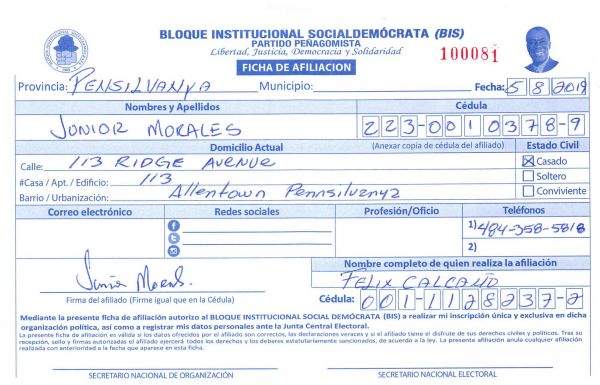 BLOQUE INSTITUCIONAL SOCIALDEMÓCRATA (BIS)
PARTIDO PEÑAGOMISTA
Libertad, Justicia, Democracia y Solidaridad
FICHA DE AFILIACION
100081
Provincia: PENSILVANYA Municipio: Fecha: 5 8 2019
Nombres y Apellidos Cédula
JUNIOR MORALES 223-0010378-9
Domicilio Actual (Anexar copia de cédula del afiliado) Estado Civil
Calle: 113 RIDGE AVENUE Casado
#Casa / Apt. / Edificio: 113 Soltero
Barrio / Urbanización: Allentown Pennsilvanya Conviviente
Correo electrónico Redes sociales Profesión/Oficio Teléfonos
1) 484-358-5818
2)
Nombre completo de quien realiza la afiliación
Junior Morales FELIX CALCAÑO
Firma del afiliado (Firme igual que en la Cédula) Cédula: 001-1128237-2
Mediante la presente ficha de afiliación autorizo al BLOQUE INSTITUCIONAL SOCIAL DEMÓCRATA (BIS) a realizar mi inscripción única y exclusiva en dicha
organización política, así como a registrar mis datos personales ante la Junta Central Electoral.
La presente ficha de afiliación es válida si los datos ofrecidos por el afiliado son correctos, las declaraciones veraces y si el afiliado tiene el disfrute de sus derechos civiles y políticos. Tras su
recepción, sello y firmas autorizadas el afiliado ejercerá todos los derechos y los deberes estatutariamente sancionados, de acuerdo a la ley. La presente afiliación anula cualquier afiliación
realizada con anterioridad a la fecha que aparece en esta ficha.
SECRETARIO NACIONAL DE ORGANIZACIÓN SECRETARIO NACIONAL ELECTORAL